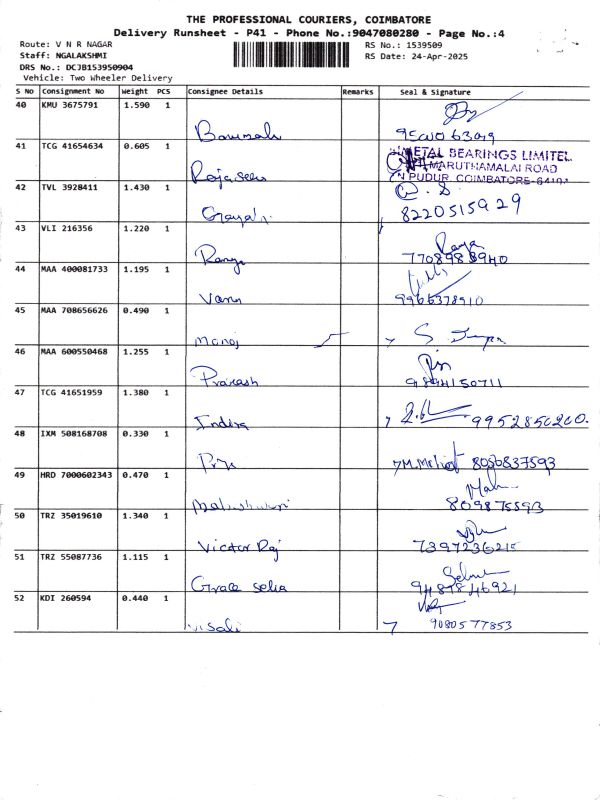 THE PROFESSIONAL COURIERS, COIMBATORE
Delivery Runsheet - P41 - Phone No.:9047080280 - Page No.:4
Route: V N R NAGAR
RS No.: 1539509
Staff: NGALAKSHMI
RS Date: 24-Apr-2025
DRS No.: DCJB153950904
Vehicle: Two Wheeler Delivery
S No Consignment No Weight PCS Consignee Details Remarks Seal & Signature
40 KMU 3675791 1.590 1
41 TCG 41654634 0.605 1
METAL BEARINGS LIMITED
MARUTHAMALAI ROAD
PUDUR, COIMBATORE-6410
Rajaseen
42 TVL 3928411 1.430 1
Gayatri 8220515929
43 VLI 216356 1.220 1
Ranga 7708988940
44 MAA 400081733 1.195 1
Vann 9966378910
45 MAA 708656626 0.490 1
Manoj
46 MAA 600550468 1.255 1
Prakash 9894150711
47 TCG 41651959 1.380 1
Indira 9952850200
48 IXM 508168708 0.330 1
Priya 8056837593
49 HRD 7000602343 0.470 1
Maheshwari 809875593
50 TRZ 35019610 1.340 1
Victor Raj 7397236215
51 TRZ 55087736 1.115 1
Grace Selia 9487846921
52 KDI 260594 0.440 1
Visali 9080577853